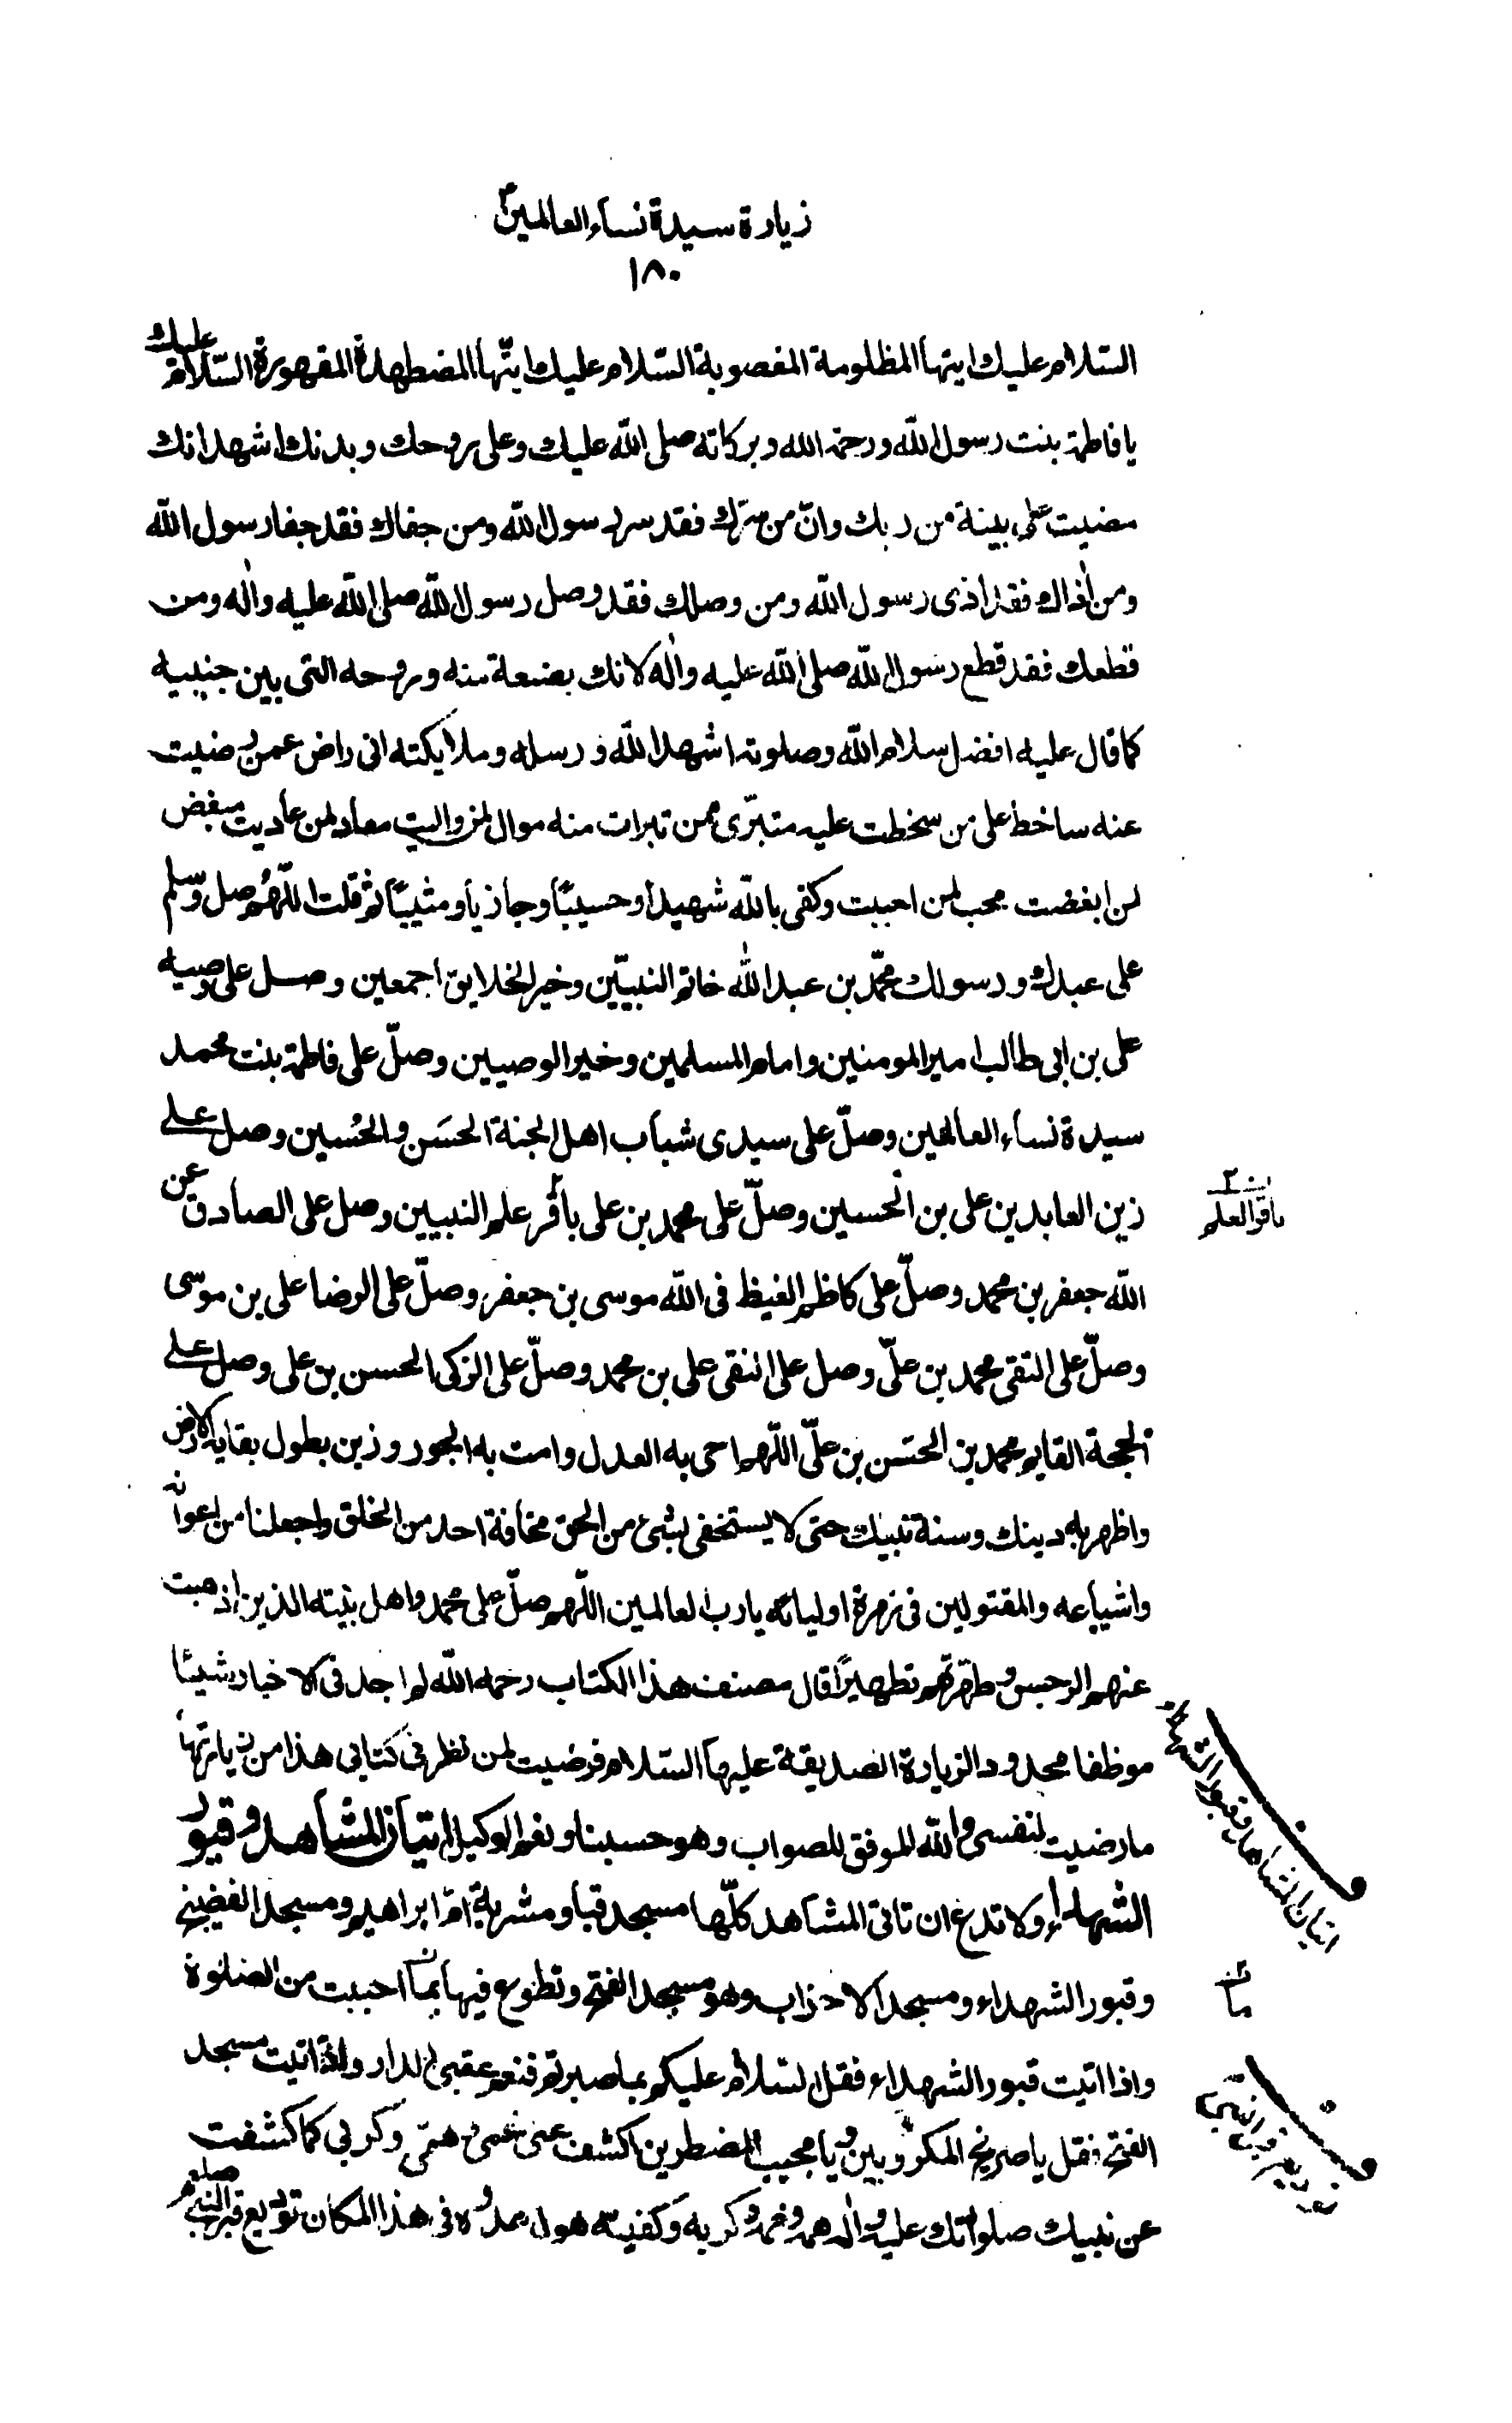 زيارة سيدة نساء العالمين ع
١٨٠
السّلام عليك ايتها المظلومة المغصوبة السّلام عليك ايتّها المضطهدة المقهورة السّلام عليك
يا فاطمة بنت رسول اللّه ورحمة الله وبركاته صلى اللّه عليك وعلى روحك وبدنك اشهد انك
مضيت على بينة من ربك وانّ من سرّك فقد سر رسول اللّه ومن جفاك فقد جفا رسول اللّه
ومن اذاك فقد اذى رسول اللّه ومن وصلك فقد وصل رسول اللّه صلى اللّه عليه واله ومن
قطعك فقد قطع رسول اللّه صلى اللّه عليه واله لانك بضعة منه وروحه التى بين جنبيه
كما قال عليه افضل سلام اللّه وصلوته اشهد اللّه ورسله وملائكته انى راض عمن رضيت
عنه ساخط على من سخطت عليه متبرّى ممن تبرات منه موال لمن واليت معاد لمن عاديت مبغض
لمن ابغضت محب لمن احببت وكفى باللّه شهيدا وحسيبًا وجازيا ومثيبًا ثم قلت اللّهم صل وسلم
على عبدك ورسولك محمّد بن عبد اللّه خاتم النبيّين وخير الخلايق اجمعين وصل على وصيه
على بن ابى طالب امير المومنين وامام المسلمين وخير الوصيين وصلّ على فاطمة بنت محمد
سيدة نساء العالمين وصلّ على سيدى شباب اهل الجنة الحسَن والحُسين وصل على
زين العابدين على بن الحسين وصلّ على محمد بن على باقر علم النبيين وصل على الصادق عن
اللّه جعفر بن محمد وصلّ على كاظم الغيظ فى اللّه موسى بن جعفر وصلّ على الرضا على بن موسى
وصلّ على التقى محمد بن علىّ وصل على النقى على بن محمد وصلّ على الزكى الحسن بن على وصل على
الحجة القايم محمد بن الحسن بن علىّ اللّهم احى به العدل وامت به الجور وزين بطول بقايه الارض
واظهر به دينك وسنة نبيك حتى لا يستخفى بشئ من الحق مخافة احد من الخلق واجعلنا من اعوانه
واشياعه والمقتولين فى زمرة اوليائه يا رب العالمين اللّهم صلّ على محمد واهل بيته الذين اذهبت
عنهم الرجس وطهرتهم تطهيرًا قال مصنف هذا الكتاب رحمه اللّه لم اجد فى الاخبار شيئا
موظفا محدود الزيارة الصديقة عليها السّلام فرضيت لمن نظر فى كتابى هذا من زيارتها
ما رضيت لنفسى واللّه الموفق للصواب وهو حسبنا ونعم الوكيل اتيان المشاهد وقبور
الشهداء ولا تدع ان تاتى المشاهد كلّها مسجد قبا ومشربة امّ ابراهيم ومسجد الفضيخ
وقبور الشهداء ومسجد الاحزاب وهو مسجد الفتح وتطوع فيها بما احببت من الصلوة
واذا اتيت قبور الشهداء فقل السّلام عليكم بما صبرتم فنعم عقبى الدار واذا اتيت مسجد
الفتح فقل يا صريخ المكروبين ويا مجيب المضطرين اكشف عنى غمى وهمّى وكربى كما كشفت
عن نبيك صلواتك عليه واله همه وغمه وكربه وكفيته هول عدوه فى هذا المكان توديع قبر النبى صلعم
باقر العلم
اتيان المشاهد وقبور الشهداء
ما
توديع قبر النبىّ